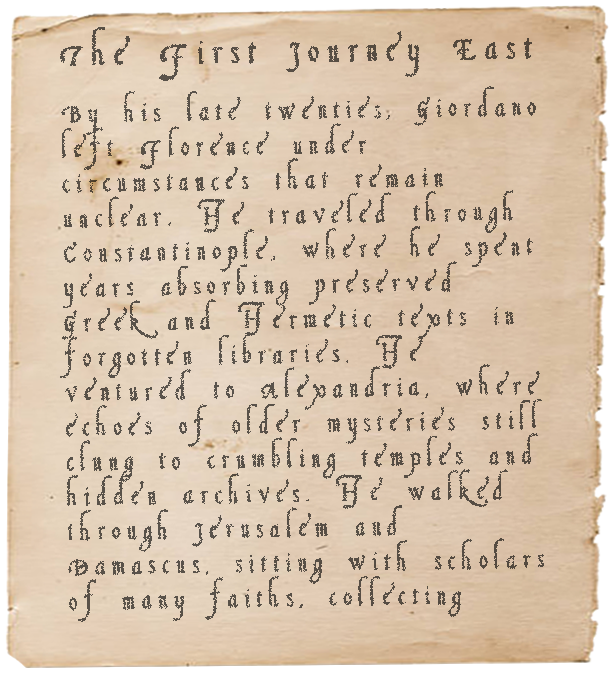 The First Journey East
By his late twenties, Giordano
left Florence under
circumstances that remain
unclear. He traveled through
Constantinople, where he spent
years absorbing preserved
Greek and Hermetic texts in
forgotten libraries. He
ventured to Alexandria, where
echoes of older mysteries still
clung to crumbling temples and
hidden archives. He walked
through Jerusalem and
Damascus, sitting with scholars
of many faiths, collecting